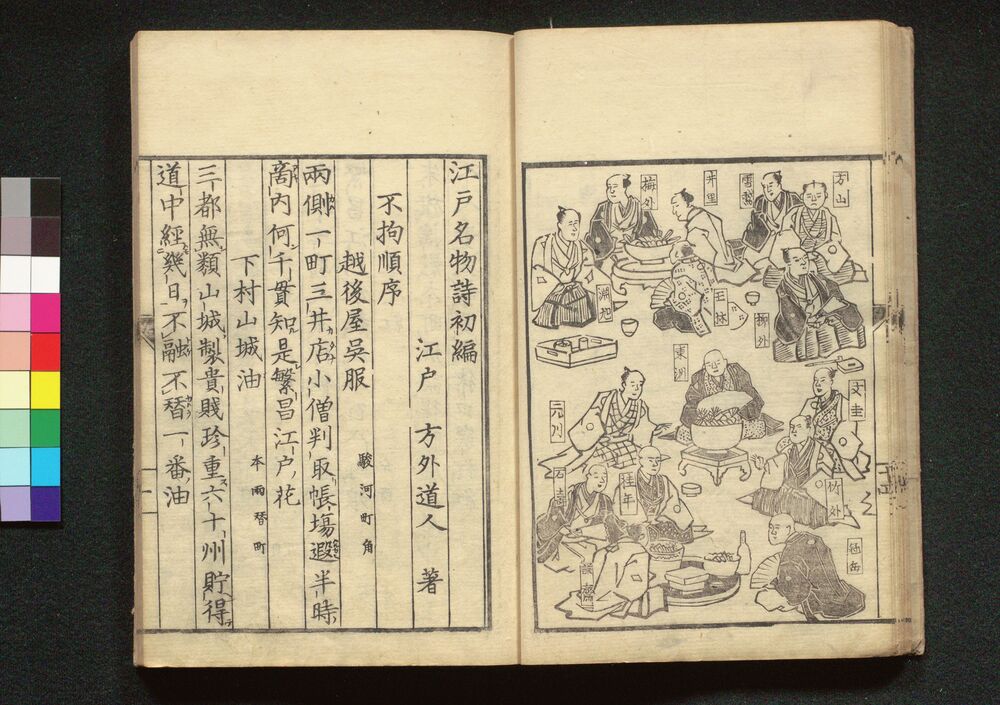 方山
雪㷀
井里
梅外
湖也
玉林
柳外
東洲
文圭
元川
竹外
石壽
桂年
談齋
江戸名物詩初編
江戸　方外道人　著
不拘順序
越後屋呉服　駿河町角
兩側一町三井店小僧判取帳場遐半時
商内何千貫知是繁昌江戸花
下村山城油　本両替町
三都無類山城製貴賤珍重六十州貯得
道中經幾日不融不替一番油